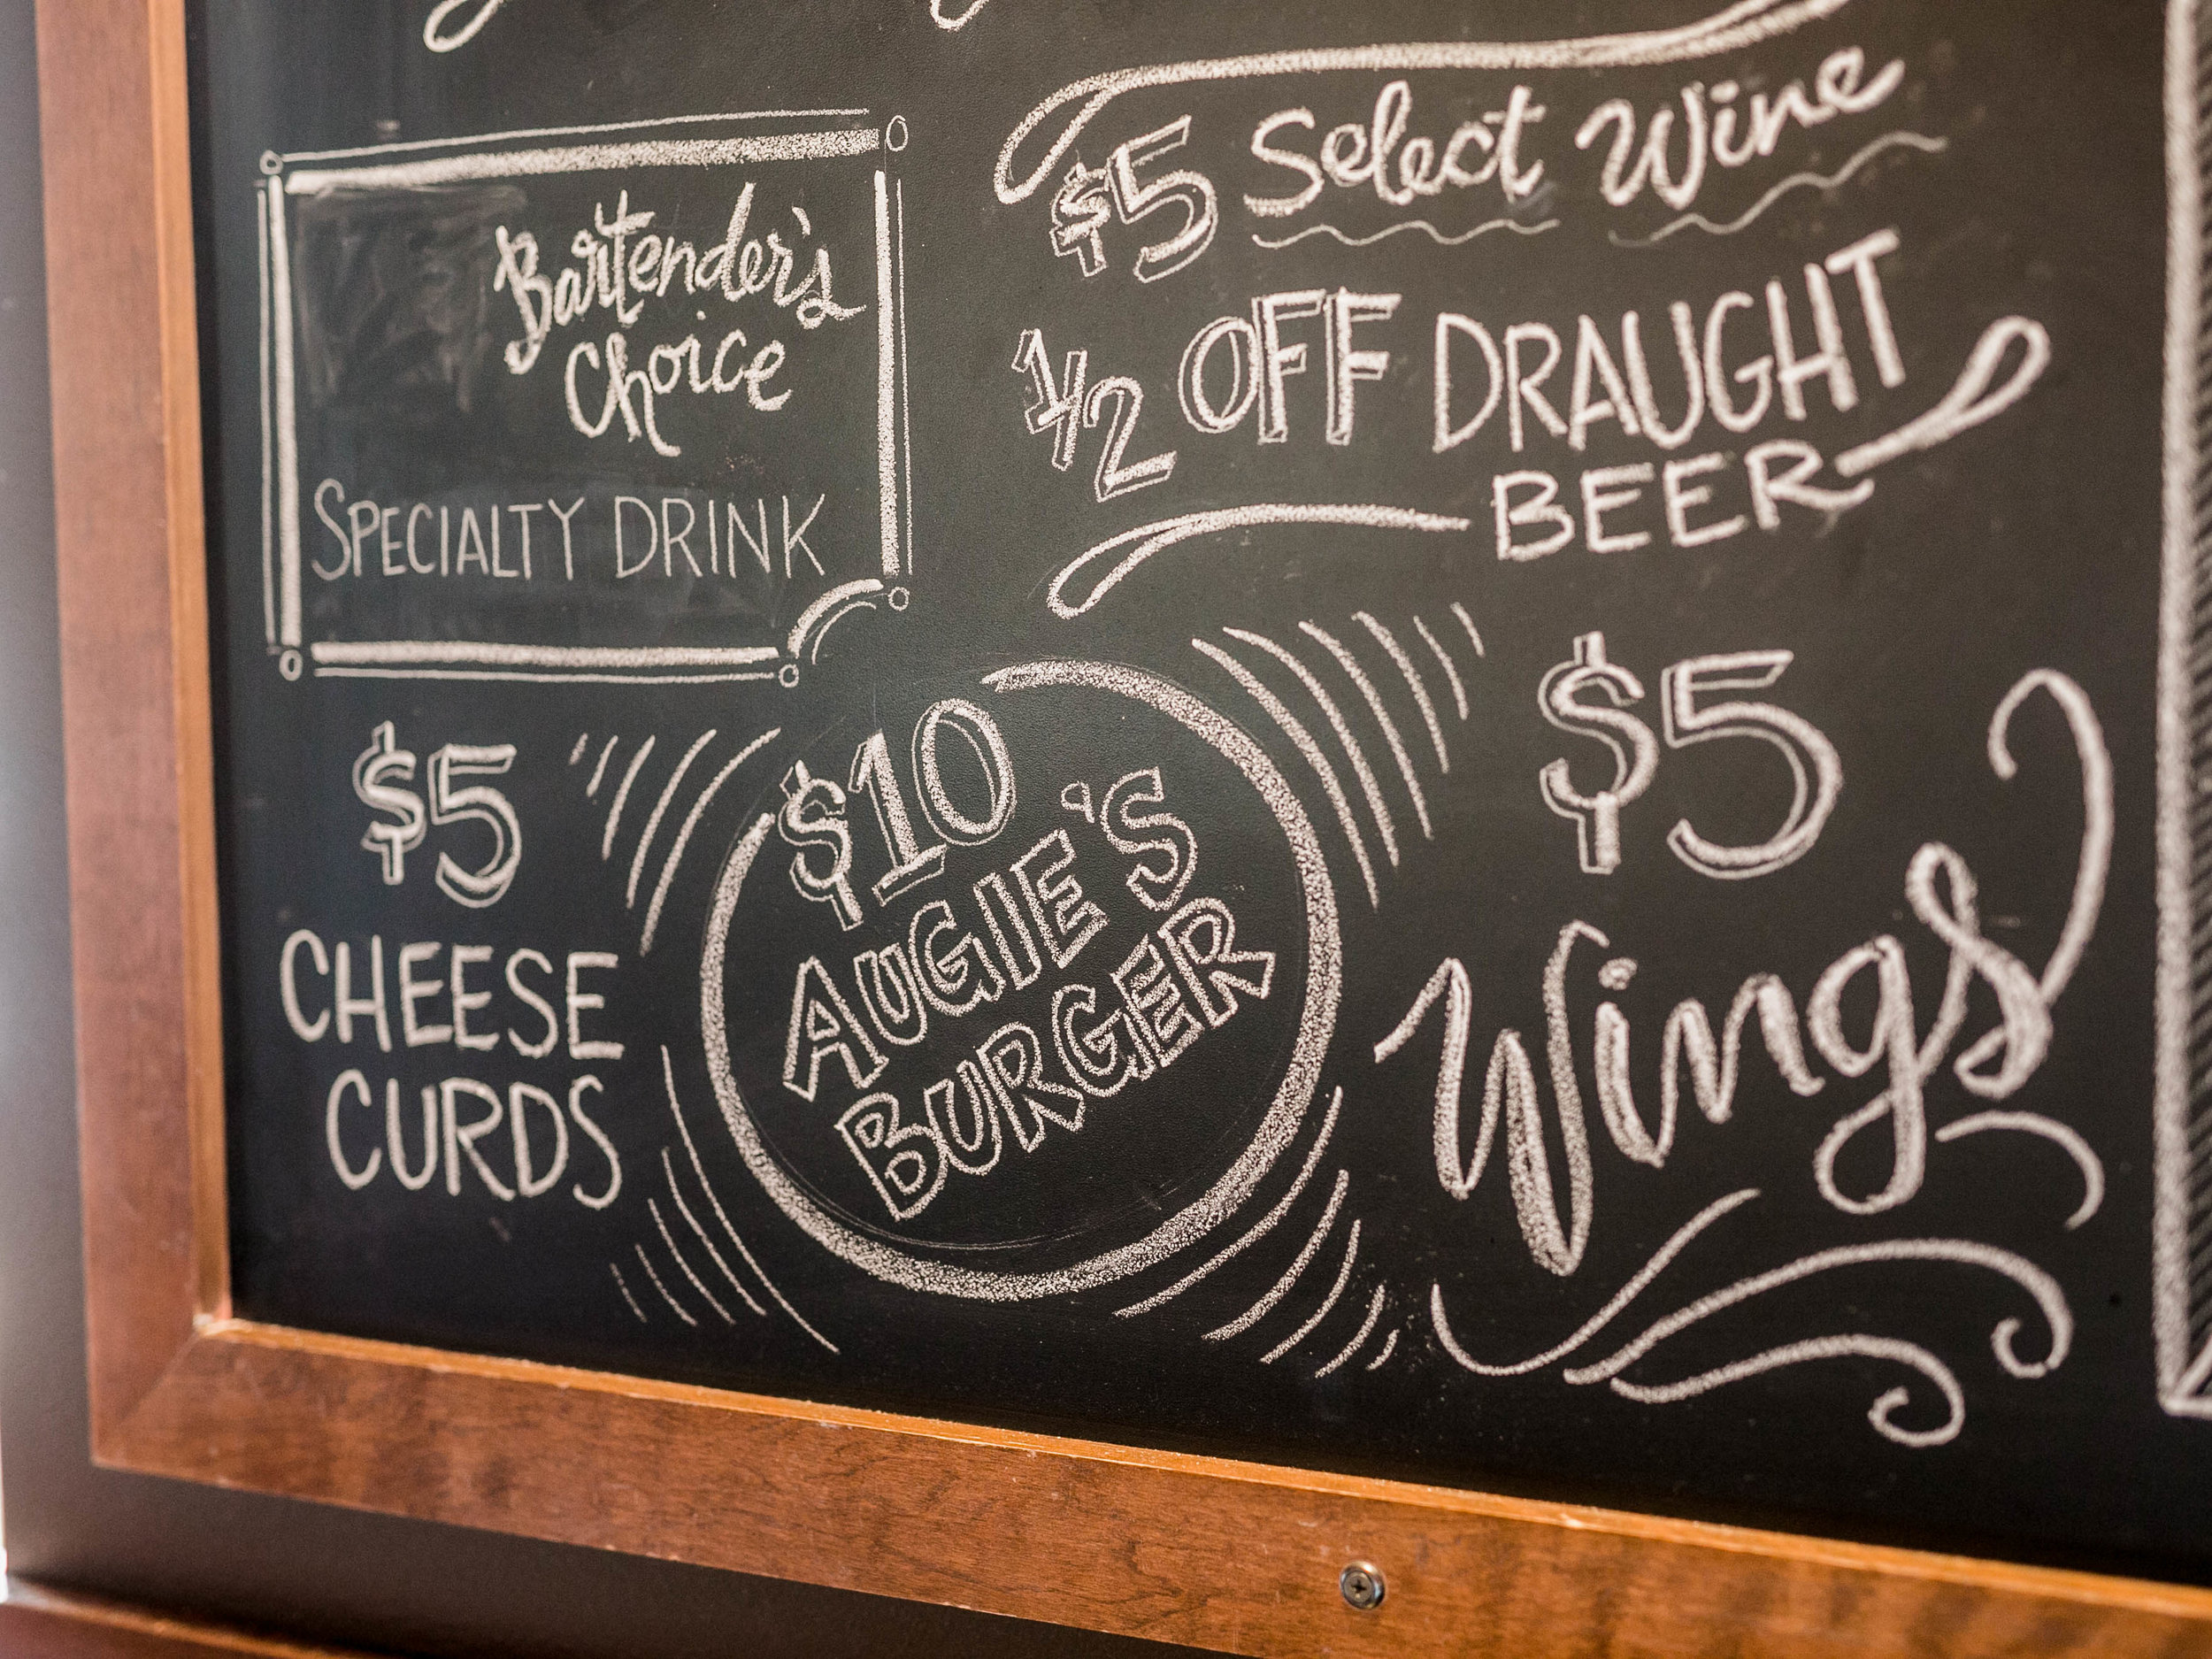 Bartender's
Choice
SPECIALTY DRINK
$5 Select Wine
1/2 OFF DRAUGHT
BEER
$5
CHEESE
CURDS
$10
AUGIE'S
BURGER
$5
Wings